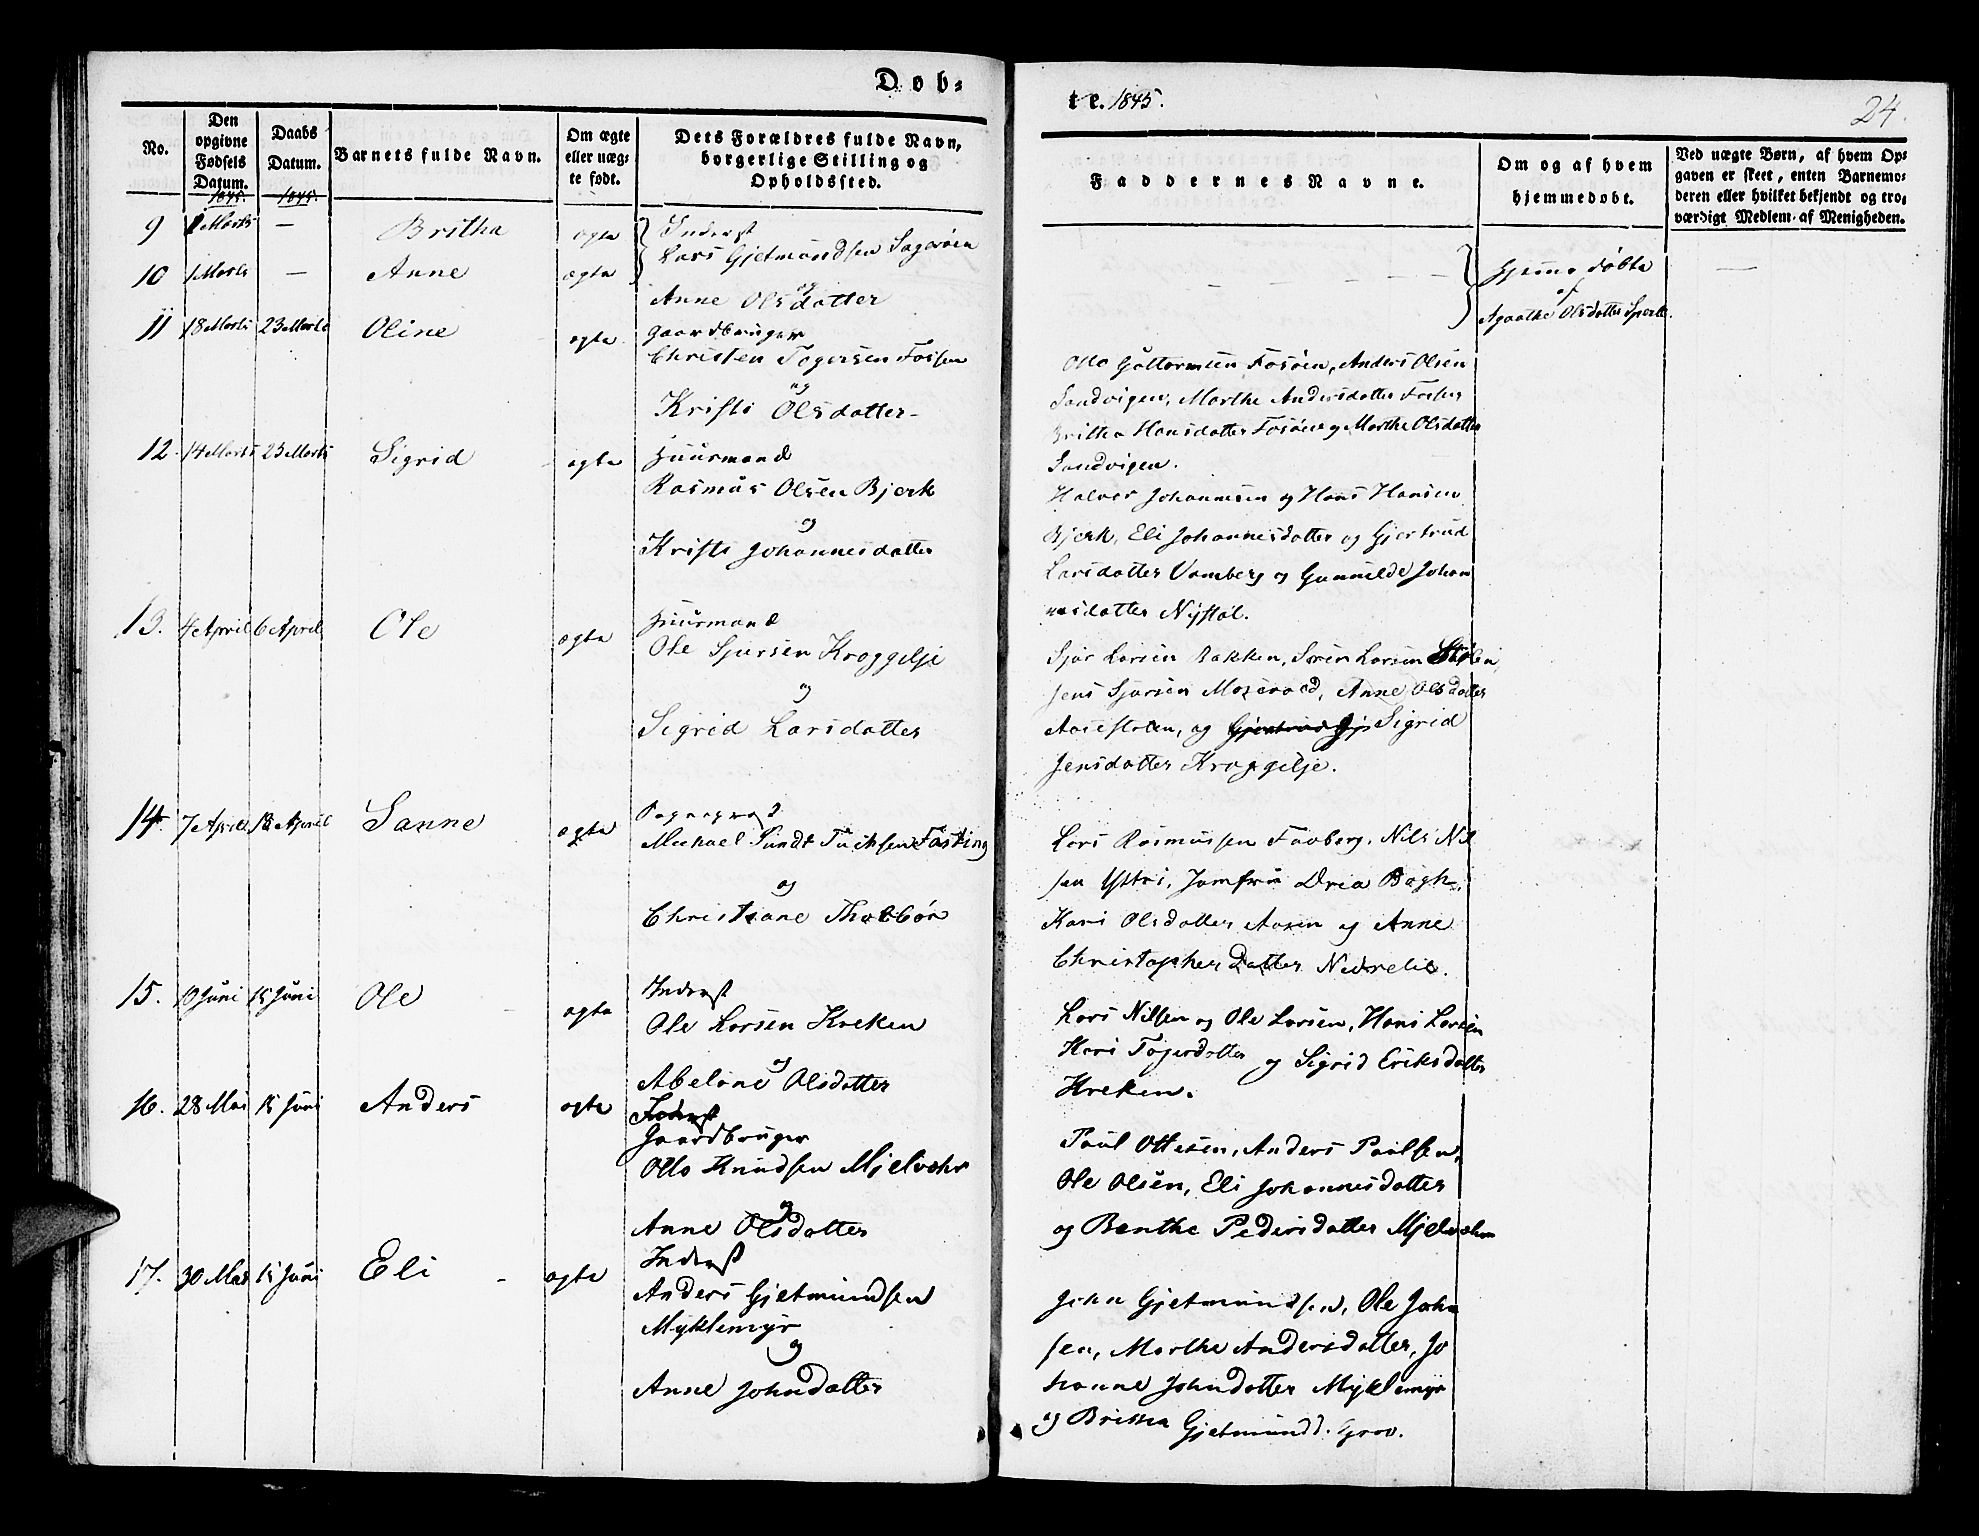 Døb-
te. 1845.
24.
No.
Den opgivne Fødsels Datum.
Daabs Datum.
Barnets fulde Navn.
Om ægte eller uæg-
te født.
Dets Forældres fulde Navn,
borgerlige Stilling og
Opholdssted.
Faddernes Navne.
Om og af hvem
hjemmedøbt.
Ved uægte Børn, af hvem Op-
gaven er skeet, enten Barnemo-
deren eller hvilket bekjendt og tro-
værdigt Medlem af Menigheden.
1845. 1845.
9 1 Marts — Britha ægte Inderst
Lars Gjetmundsen Sagarøen
10 1 Marts — Anne ægte
og
Anne Olsdatter
Hjemme døbte
af
Agathe Olsdatter
11 18 Marts 23 Marts Oline ægte Gaardbruger
Christen Togersen Fossen
og
Kristi Olsdatter
Otto Guttormsen Fosøen, Anders Olsen
Sandvigen, Marthe Andersdatter Fossen
Britha Hansdatter Fosøen og Marthe Olsdatter
Sandvigen.
12 14 Marts 23 Marts Sigrid ægte Huusmand
Rasmus Olsen Bjerk
og
Kristi Johannesdatter
Halvor Johannesen og Hans Hansen
Bjerk, Eli Johannesdatter og Gjertrud
Larsdatter Vamberg og Gunnilde Johan
nesdatter Nystøl.
13. 4 April 6 April Ole ægte Huusmand
Ole Sjursen Kroggelje
og
Sigrid Larsdatter
Sjur Larsen Bakken, Søren Larsen Stølen
Jens Sjursen Moserød, Anne Olsdatter
Aasestølen, og Sigrid
Jensdatter Kroggelje.
14. 7 April 18 April Sanne ægte
Michael Sundt Tuchsen Fasting
og
Christiane
Lars Rasmussen Favberg, Nils Nil
sen Ytri, Jomfru Dria Bagh,
Kari Olsdatter Aasen og Anne
Christopher Datter Nedrelie.
15. 10 Juni 15 Juni Ole ægte Inderst
Ole Larsen Kreken
og
Abelone Olsdatter
Lars Nilsen og Ole Larsen, Hans Larsen
Kari Togerdatter og Sigrid Eriksdatter
Kreken.
16. 28 Mai 15 Juni Anders ægte Inderst
Gaardbruger
Otto Knudsen Mjelvehr
og
Anne Olsdatter
Paul Ottesen, Anders Paulsen,
Ole Olsen, Eli Johannesdatter
og Benthe Pedersdatter
17. 30 Mai 15 Juni Eli ægte Inderst
Anders Gjetmundsen
Myklemyr
og
Anne Johndatter
John Gjetmundsen, Ole John
sen, Marthe Andersdatter, Jo
hanne Johndatter Myklemyr
og Gjetmundd. Grov.